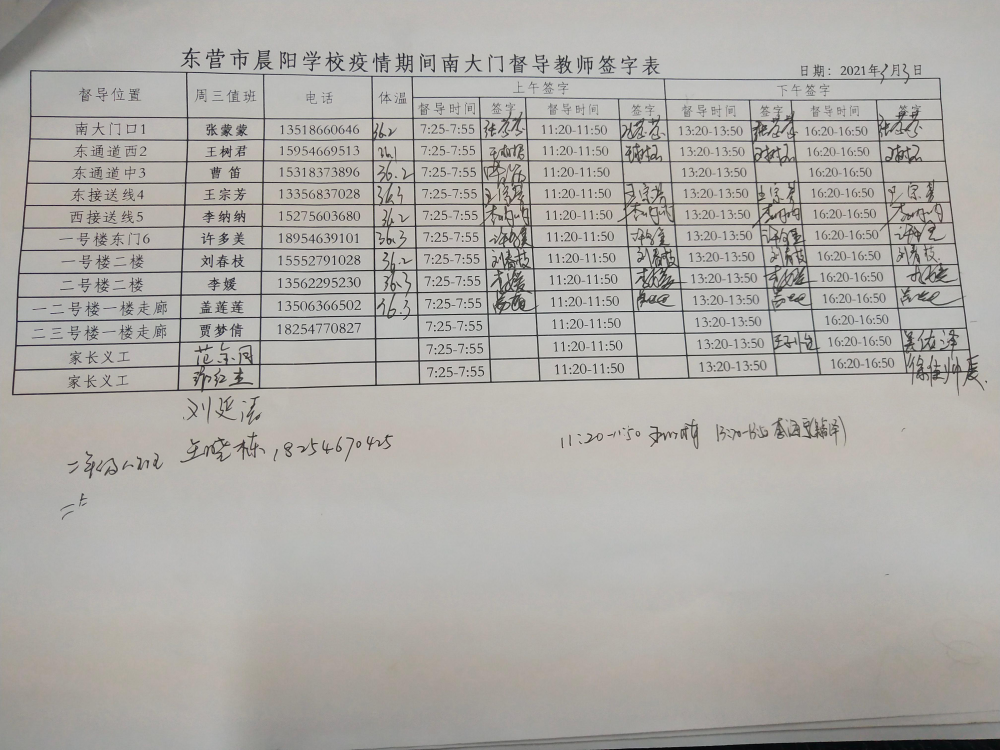 东营市晨阳学校疫情期间南大门督导教师签字表
日期：2021年3月3日
督导位置 周三值班 电话 体温 上午签字 下午签字
督导时间 签字 督导时间 签字 督导时间 签字 督导时间 签字
南大门口1 张蒙蒙 13518660646 36.2 7:25-7:55 张蒙蒙 11:20-11:50 张蒙蒙 13:20-13:50 张蒙蒙 16:20-16:50 张蒙蒙
东通道西2 王树君 15954669513 7:25-7:55 王树君 11:20-11:50 王树君 13:20-13:50 王树君 16:20-16:50 王树君
东通道中3 曹笛 15318373896 36.2 7:25-7:55 曹笛 11:20-11:50 13:20-13:50 16:20-16:50
东接送线4 王宗芳 13356837028 36.3 7:25-7:55 王宗芳 11:20-11:50 王宗芳 13:20-13:50 王宗芳 16:20-16:50 王宗芳
西接送线5 李纳纳 15275603680 36.2 7:25-7:55 李纳纳 11:20-11:50 李纳纳 13:20-13:50 李纳纳 16:20-16:50 李纳纳
一号楼东门6 许多美 18954639101 36.3 7:25-7:55 许多美 11:20-11:50 许多美 13:20-13:50 许多美 16:20-16:50 许多美
一号楼二楼 刘春枝 15552791028 36.2 7:25-7:55 刘春枝 11:20-11:50 刘春枝 13:20-13:50 刘春枝 16:20-16:50 刘春枝
二号楼二楼 李媛 13562295230 36.3 7:25-7:55 李媛 11:20-11:50 李媛 13:20-13:50 李媛 16:20-16:50 李媛
一二号楼一楼走廊 盖莲莲 13506366502 36.3 7:25-7:55 11:20-11:50 13:20-13:50 16:20-16:50
二三号楼一楼走廊 贾梦倩 18254770827 7:25-7:55 11:20-11:50 13:20-13:50 16:20-16:50
家长义工 7:25-7:55 11:20-11:50 13:20-13:50 16:20-16:50
家长义工 7:25-7:55 11:20-11:50 13:20-13:50 16:20-16:50
刘延洁
王晓栋 18254670425
11:20-11:50 13:20-13:50